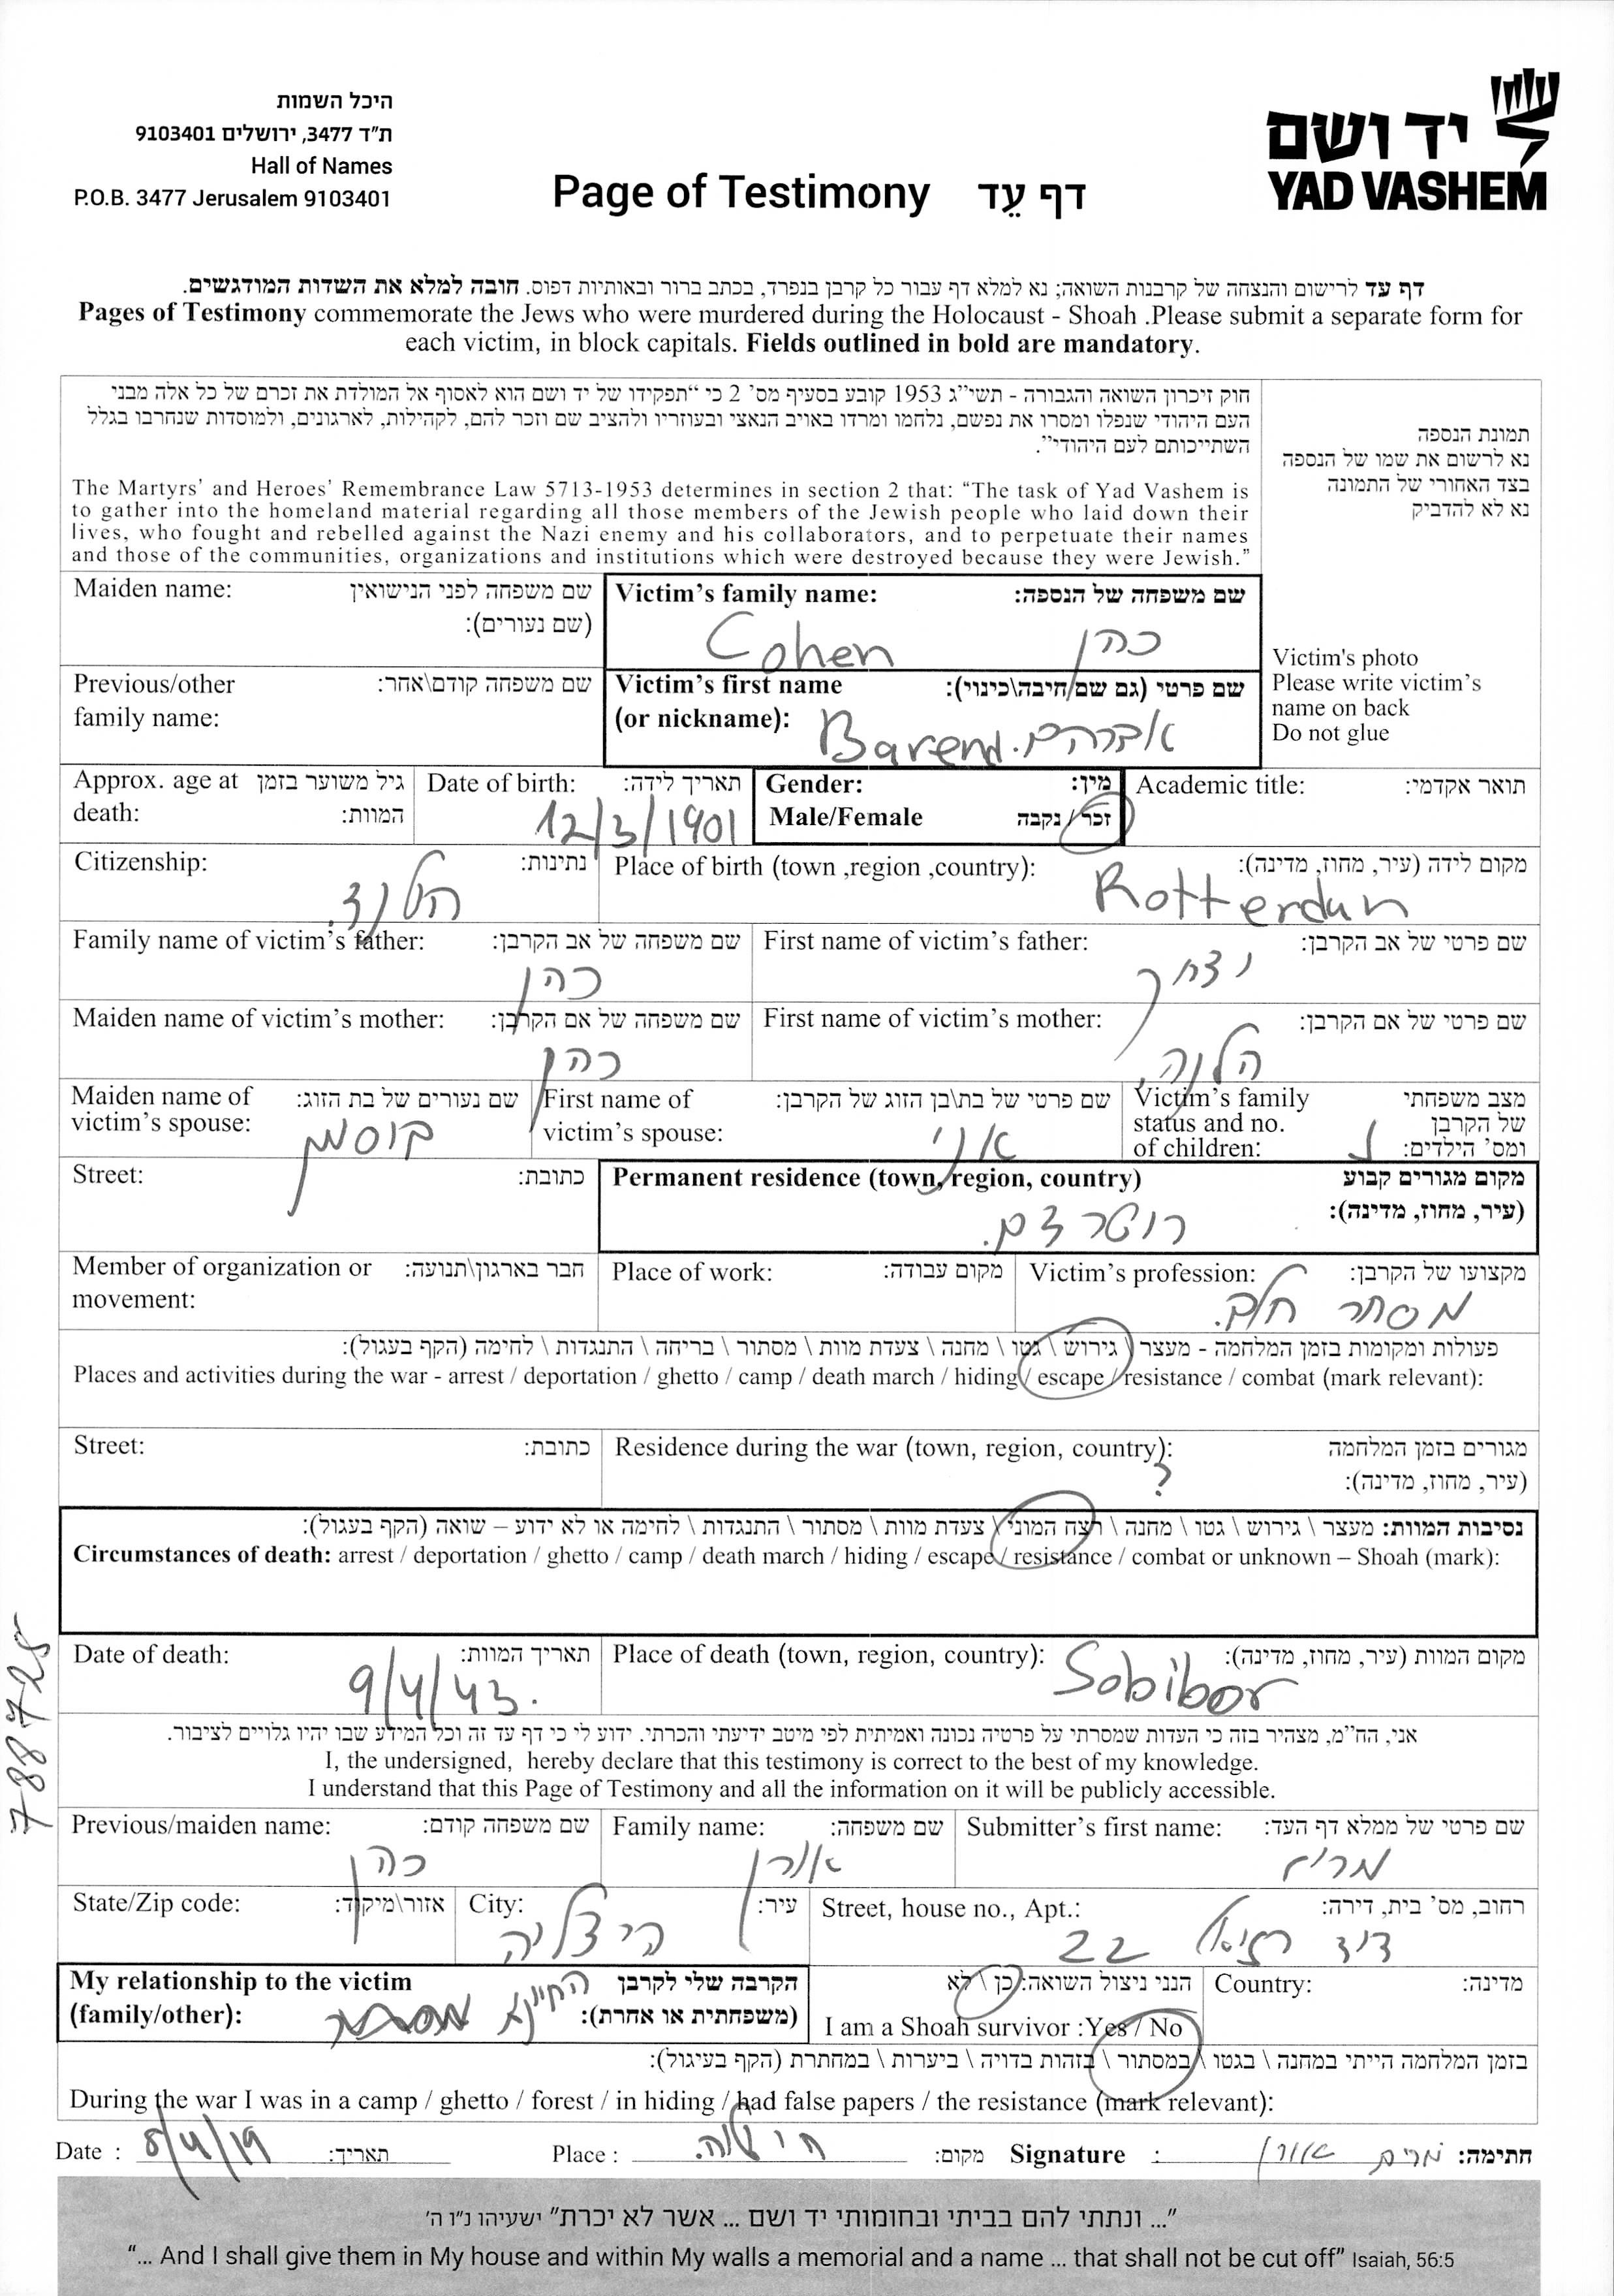 היכל השמות
ת"ד 3477, ירושלים 9103401
Hall of Names
P.O.B. 3477 Jerusalem 9103401
Page of Testimony דף עֵד
יד ושם
YAD VASHEM
דף עד לרישום והנצחה של קרבנות השואה; נא למלא דף עבור כל קרבן בנפרד, בכתב ברור ובאותיות דפוס. חובה למלא את השדות המודגשים.
Pages of Testimony commemorate the Jews who were murdered during the Holocaust - Shoah .Please submit a separate form for
each victim, in block capitals. Fields outlined in bold are mandatory.
חוק זיכרון השואה והגבורה - תשי"ג 1953 קובע בסעיף מס' 2 כי "תפקידו של יד ושם הוא לאסוף אל המולדת את זכרם של כל אלה מבני
העם היהודי שנפלו ומסרו את נפשם, נלחמו ומרדו באויב הנאצי ובעוזריו ולהציב שם וזכר להם, לקהילות, לארגונים, ולמוסדות שנחרבו בגלל
השתייכותם לעם היהודי".
The Martyrs' and Heroes' Remembrance Law 5713-1953 determines in section 2 that: "The task of Yad Vashem is
to gather into the homeland material regarding all those members of the Jewish people who laid down their
lives, who fought and rebelled against the Nazi enemy and his collaborators, and to perpetuate their names
and those of the communities, organizations and institutions which were destroyed because they were Jewish."
תמונת הנספה
נא לרשום את שמו של הנספה
בצד האחורי של התמונה
נא לא להדביק
Victim's photo
Please write victim's
name on back
Do not glue
Maiden name: שם משפחה לפני הנישואין
(שם נעורים):
Victim's family name: שם משפחה של הנספה:
Cohen כהן
Previous/other שם משפחה קודם\אחר:
family name:
Victim's first name שם פרטי (גם שם חיבה\כינוי):
(or nickname): Barend. אברהם
Approx. age at גיל משוער בזמן
death: המוות:
Date of birth: תאריך לידה:
12/3/1901
Gender: מין:
Male/Female זכר / נקבה
Academic title: תואר אקדמי:
Citizenship: נתינות:
הולנד.
Place of birth (town ,region ,country): מקום לידה (עיר, מחוז, מדינה):
Rotterdam
Family name of victim's father: שם משפחה של אב הקרבן:
כהן
First name of victim's father: שם פרטי של אב הקרבן:
יצחק
Maiden name of victim's mother: שם משפחה של אם הקרבן:
כהן
First name of victim's mother: שם פרטי של אם הקרבן:
הלנה.
Maiden name of שם נעורים של בת הזוג:
victim's spouse:
First name of שם פרטי של בת\בן הזוג של הקרבן:
victim's spouse: אני
Victim's family מצב משפחתי
status and no. של הקרבן
of children: ומס' הילדים: נ
Street: כתובת:
Permanent residence (town, region, country) מקום מגורים קבוע
(עיר, מחוז, מדינה):
רוטרדם.
Member of organization or חבר בארגון\תנועה:
movement:
Place of work: מקום עבודה:
Victim's profession: מקצועו של הקרבן:
מסחר חלב.
פעולות ומקומות בזמן המלחמה - מעצר \ גירוש \ גטו \ מחנה \ צעדת מוות \ מסתור \ בריחה \ התנגדות \ לחימה (הקף בעגול):
Places and activities during the war - arrest / deportation / ghetto / camp / death march / hiding / escape / resistance / combat (mark relevant):
Street: כתובת:
Residence during the war (town, region, country): מגורים בזמן המלחמה
? (עיר, מחוז, מדינה):
נסיבות המוות: מעצר \ גירוש \ גטו \ מחנה \ רצח המוני \ צעדת מוות \ מסתור \ התנגדות \ לחימה או לא ידוע – שואה (הקף בעגול):
Circumstances of death: arrest / deportation / ghetto / camp / death march / hiding / escape / resistance / combat or unknown – Shoah (mark):
Date of death: תאריך המוות:
9/4/43.
Place of death (town, region, country): מקום המוות (עיר, מחוז, מדינה):
Sobibor
788725
אני, הח"מ, מצהיר בזה כי העדות שמסרתי על פרטיה נכונה ואמיתית לפי מיטב ידיעתי והכרתי. ידוע לי כי דף עד זה וכל המידע שבו יהיו גלויים לציבור.
I, the undersigned, hereby declare that this testimony is correct to the best of my knowledge.
I understand that this Page of Testimony and all the information on it will be publicly accessible.
Previous/maiden name: שם משפחה קודם:
כהן
Family name: שם משפחה:
אורן
Submitter's first name: שם פרטי של ממלא דף העד:
מרים
State/Zip code: אזור\מיקוד:
City: עיר:
הרצליה
Street, house no., Apt.: רחוב, מס' בית, דירה:
דוד רזיאל 22
My relationship to the victim הקרבה שלי לקרבן
(family/other): (משפחתית או אחרת):
הנני ניצול השואה: כן \ לא
I am a Shoah survivor :Yes / No
Country: מדינה:
בזמן המלחמה הייתי במחנה \ בגטו \ במסתור \ בזהות בדויה \ ביערות \ במחתרת (הקף בעיגול):
During the war I was in a camp / ghetto / forest / in hiding / had false papers / the resistance (mark relevant):
Date : 8/4/19 תאריך: Place : מקום: Signature : מרים אורן חתימה:
"... ונתתי להם בביתי ובחומותי יד ושם ... אשר לא יכרת" ישעיהו נ"ו ה'
"... And I shall give them in My house and within My walls a memorial and a name ... that shall not be cut off" Isaiah, 56:5